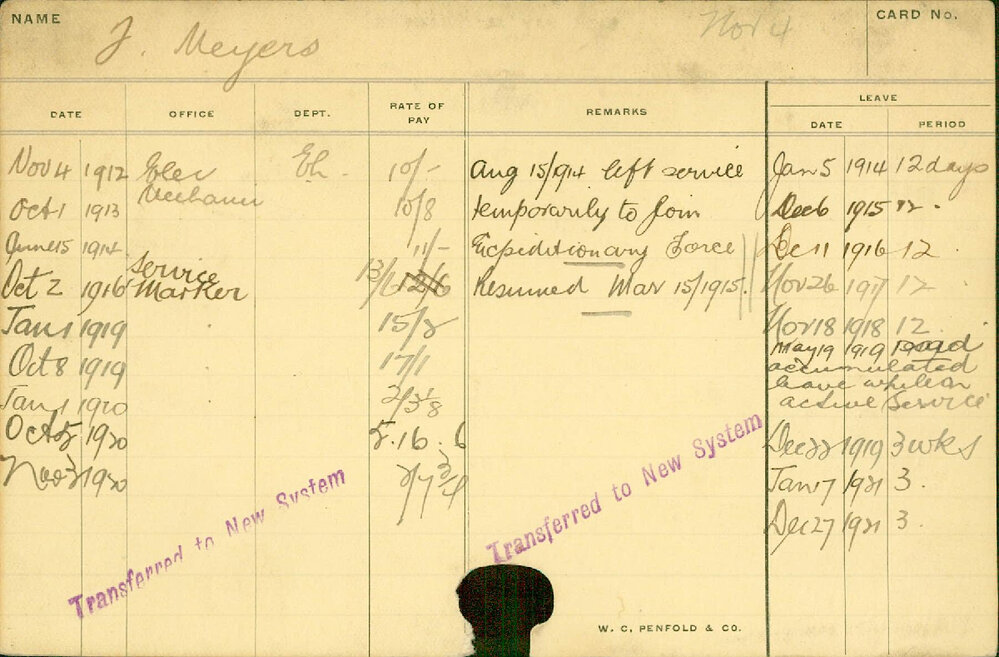 NAME
J. Meyers
Nov 4
CARD No.
DATE OFFICE DEPT. RATE OF PAY REMARKS LEAVE
DATE PERIOD
Nov 4 1912 Elec El. 10/- Aug 15/914 left service Jan 5 1914 12 days
Mechanic
Oct 1 1913 10/8 temporarily to join Dec 6 1915 12 .
June 15 1914 11/- Expeditionary Force Dec 11 1916 12 .
Service
Oct 2 1916 Marker 13/6 12/6 Resumed Mar 15/1915. Nov 26 1917 12
Jan 1 1919 15/8 Nov 18 1918 12.
May 19 1919 paid
Oct 8 1919 17/1 accumulated
leave while on
Jan 1 1920 active service
Oct 5 1920 5.16.6 Dec 22 1919 3 wks
Nov 3 1920 Jan 7 1921 3.
Dec 27 1921 3.
Transferred to New System
Transferred to New System
W. C. PENFOLD & CO.